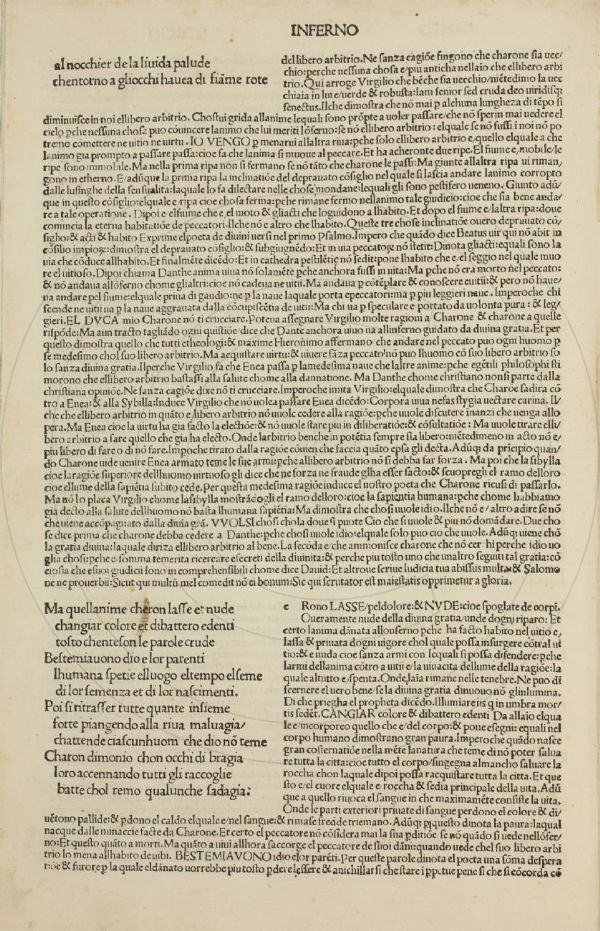 INFERNO
al nocchier de la liuida palude
chentorno a gliocchi hauea di fiãme rote
del libero arbitrio. Ne sanza cagiõe fingono che charone sia uec/
chio: perche nessuna chosa e piu anticha nellaio che ellibero arbi
trio. Qui arroge Virgilio che bẽche sia uecchio/niẽtedimeno la uec
chiaia in lui e/uerde & robusta: Iam senior sed cruda deo uiridisq;
senectus. Ilche dimostra che nõ mai p alchuna lungheza di tẽpo si
diminuisce in noi ellibero arbitrio. Chostui grida allanime lequali sono prõpte a uoler passare/che nõ sperin mai uedere el
cielo p̱che nessuna chosa puo cõuincere lanimo che lui meriti lõferno: se nõ ellibero arbitrio: elquale se nõ fussi ĩ noi nõ po
tremo comettere ne uitio ne uirtu. IO VENGO p menarui allaltra riua: p̱che solo ellibero arbitrio e/quello elquale a che
lanimo gia prompto a passare passa: cioe fa che lanima si muoue al peccare. Et ha acheronte due ripe. El fiume e/mobile/le
ripe sono immobile. Ma nella prima ripa non si fermano se nõ tãto che charone le passi: Ma giunte allaltra ripa ui riman/
gono in etherno. E adũque la prima ripa la inclinatiõe del deprauato cõsiglio nel quale si lascia andare lanimo corropto
dalle lusinghe della sensualita: laquale lo fa dilectare nelle chose mondane: lequali gli sono pestifero ueneno. Giunto adũ/
que in questo cõsiglio: elquale e ripa cioe chosa ferma: p̱che rimane fermo nellanimo tale giudicio: cioe che sia bene anda/
re a tale operatione. Dipoi e elfiume che e/el moto & gliacti che loguidono a lhabito. Et dopo el fiume e/laltra ripa: doue
comincia la eterna habitatiõe de peccatori. Ilche nõ e altro che lhabito. Queste tre chose inclinatiõe ouero deprauato cõ/
siglio: & acti & habito Exprime elpoeta de diuini uersi nel primo Psalmo. Impero che quãdo dice Beatus uir qui nõ abit in
cõsilio impiorum: dimostra el deprauato cõsiglio: & subgiugnẽdo: Et in uia peccatorum nõ stetit: Dinota gliacti: equali sono la
uia che cõduce allhabito. Et finalmẽte dicẽdo: Et in cathedra pestilẽtię nõ sedit: pone lhabito che e/el seggio nel quale muo
re el uitioso. Dipoi chiama Danthe anima uiua nõ solamẽte p̱che anchora fussi in uita: Ma p̱che nõ era morto nel peccato:
& nõ andaua allõferno chome glialtri: cioe nõ cadeua ne uitii. Ma andaua p cõtẽplare & conoscere euitii: & pero nõ haue/
ua andare pel fiume: elquale priua di gaudio: ne p la naue laquale porta epeccatori: ma p piu leggieri naue. Imperoche chi
scende ne uitii ua p la naue aggrauata dalla cõcupiscẽtia de uitii: Ma chi ua p speculare e portato da uolonta pura: & leg/
gieri. EL DVCA mio Charone nõ ti crucciare. Poteua assegnare Virgilio molte ragioni a Charone & charone a quelle
rispõde: Ma a un tracto tagliãdo ogni quistiõe/dice che Dante anchora uiuo ua allinferno guidato da diuina gratia. Et per
questo dimostra quello che tutti etheologi: & maxime Hieronimo affermano: che andare nel peccato puo ogni huomo p
se medesimo chol suo libero arbitrio. Ma acquistare uirtu: & uiuere sãza peccato/nõ puo lhuomo cõ suo libero arbitrio so
lo sanza diuina gratia. Ilperche Virgilio fa che Enea passa p lamedesima naue che laltre anime: p̱che egẽtili philosophi sti
morono che ellibero arbitrio bastassi alla salute chome alla damnatione. Ma Danthe chome christiano non si parte dalla
christiana opiniõe. Ne sanza cagiõe dixe nõ ti crucciare. Imperoche imita Virgilio: elquale dimostra che Charõe sadira cõ
tro a Enea: & alla Sybilla: induce Virgilio che nõ uolea passare Enea dicẽdo: Corpora uiua nefas stygia uectare carina. Il/
che che ellibero arbitrio in quãto e/libero arbitrio nõ uuole cedere alla ragiõe: p̱che uuole discutere inanzi che uenga allo
pera. Ma Enea cioe la uirtu ha gia facto la electiõe: & nõ uuole stare piu in diliberatiõe: & cõsultatiõe: Ma uuole tirare elli/
bero arbitrio a fare quello che gia ha electo. Onde larbitrio benche in potẽtia sempre sia libero: niẽtedimeno in acto nõ e/
piu libero di fare o di nõ fare. Impoche tirato dalla ragiõe cõuien che faccia quãto epsa gli decta. Adũq; da pricipio quan/
do Charone uide uenire Enea armato teme le sue armi: p̱che allibero arbitrio nõ si debba far forza. Ma poi che la sybilla
cioe la ragiõe superiore dellhuomo uirtuoso gli dice che ne forza ne fraude glha esser facto: & scuopregli el ramo delloro:
cioe ellume della sapiẽtia subito cede. Per questa medesima ragiõe induce el nostro poeta che Charone ricusi di passarlo.
Ma nõ lo placa Virgilio chome la sybylla mostrãdogli el ramo delloro: cioe la sapientia humana: p̱che chome habbiamo
gia decto alla salute dellhuomo nõ basta lhumana sapiẽtia: Ma dimostra che chosi uuole idio. Ilche nõ e/altro adire se nõ
che uiene accõpagnato dalla diuia gra. VVOLSI chosi chola doue si puote Cio che si uuole & piu nõ domãdare. Due cho
se dice prima che charone debba cedere a Danthe: p̱che chosi uuole idio: elquale solo puo cio che uuole. Adũq; uiene chõ
la gratia diuina: laquale diriza ellibero arbitrio al bene. La secõda e/che ammonisce charone che nõ cer hi perche idio uo
glia chosi: p̱che e/somma temerita ricercare e secreti della diuinita: & perche piu tosto uno che unaltro seguiti tal gratia: cõ
cio sia che e suoi giudicii sono in comprehensibili chome dice Dauid: Et altroue Iudicia tua abissus multa: & Salomo
ne ne prouerbii: Sicut qui multũ mel comedit nõ ei bonum: Sic qui scrutator est maiestatis opprimetur a gloria.
Ma quellanime cheron lasse et nude
changiar colore et dibattero edenti
tosto chenteson le parole crude
Bestemiauono dio e lor parenti
lhumana spetie elluogo eltempo elseme
di lor sementa et di lor nascimenti.
Poi si ritrasser tutte quante insieme
forte piangendo alla riua maluagia/
chattende ciascunhuom che dio nõ teme
Charon dimonio chon occhi di bragia
loro accennando tutti gli raccoglie
batte chol remo qualunche sadagia:
e Rono LASSE/pel dolore: & NVDE: cioe spogliate de corpi.
Oueramente nude della diuina gratia/unde dogni riparo: Et
certo lanima dãnata allonferno p̱che ha facto habito nel uitio e/
lassa & priuata dogni uigore chol quale possa insurgere cõtra al ui
tio: & e nuda cioe sanza armi con lequali si possa difendere: p̱che
larmi dellanima cõtro a uitii e/la uiuacita dellume della ragiõe: la
quale al tutto e/spenta. Onde laia rimane nelle tenebre. Ne puo di
scernere el uero bene/se la diuina gratia dinuouo nõ glinlumina.
Di che priegha el propheta dicẽdo. Illuminare iis q in umbra mor/
tis sedẽt. CANGIAR colore & dibattero edenti Da allaio elqua
le e/incorporeo quello che e/del corpo: & pone e segni: equali nel
corpo humano dimostrano gran paura. Imperoche quãdo nasce
gran costernatiõe nella mẽte lanatura che teme di nõ poter salua
re tutta la citta: cioe tutto el corpo/singegna almancho saluare la
roccha chon laquale dipoi possa racquistare tutta la citta. Et que
sto e/el cuore elquale e roccha & sedia principale della uita. Adũ
que a quello riuoca el sangue in che maximamẽte consiste la uita.
Onde le parti exteriori priuate di sangue perdono el colore & di/
uẽtono pallide: & p̱dono el caldo elquale e/nel sangue: & rimase fredde triemano. Adũq; p̱ questo dinota la paura: laqual
nacque dalle minaccie facte da Charone. Et certo el peccatore nõ cõsidera mai la sua p̱ditiõe se nõ quãdo si uede nellõfer/
no: Et questo quãto a morti. Ma quãto a uiui allhora saccorge el peccatore de suoi dãni: quando uede chel suo libero arbi
trio lo mena allhabito de uitii. BESTEMIAVONO idio e lor parẽti. Per queste parole dinota el poeta una sõma despera
tiõe & furore p la quale el dãnato uorrebbe piu tosto p̱der elessere & anichillarsi che stare ĩ p̱petue pene si che si cõcorda cõ